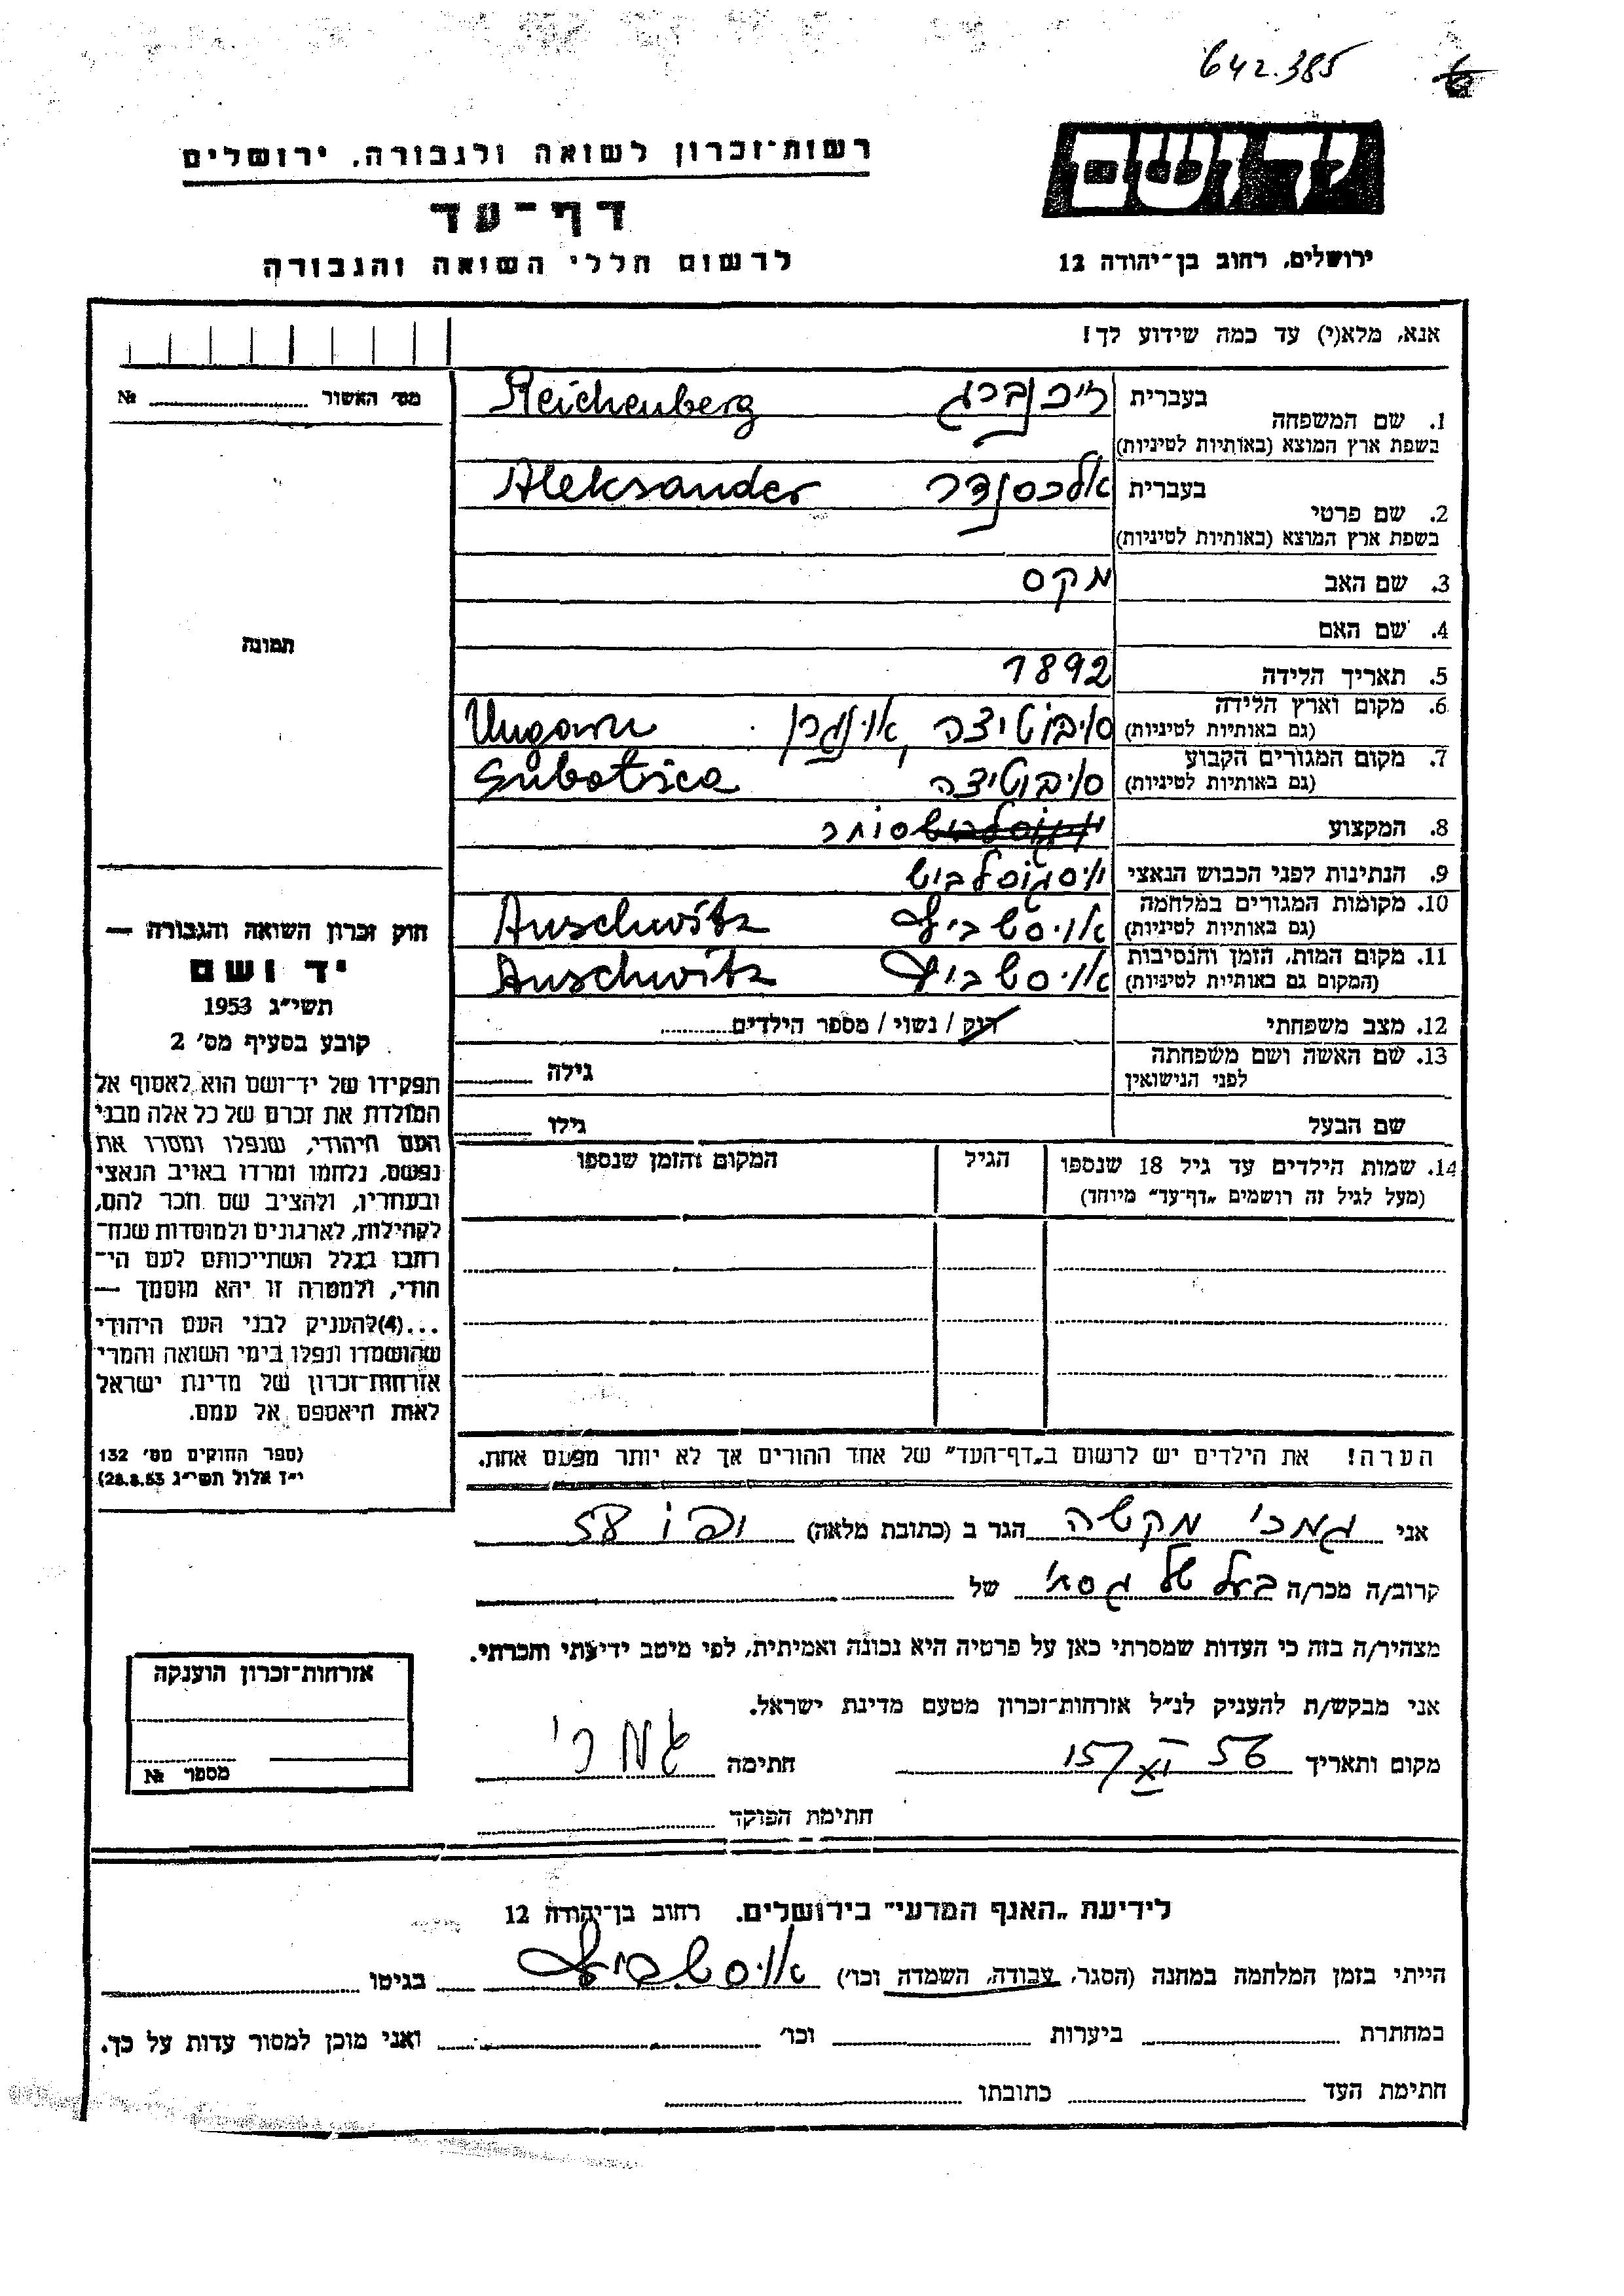 642.385
רשות־זכרון לשואה ולגבורה, ירושלים
יד ושם
דף־עד
לרשום חללי השואה והגבורה
ירושלים, רחוב בן־יהודה 12
אנא, מלא(י) עד כמה שידוע לך!
מס׳ האשור № 
1. שם המשפחה
בעברית רייכנברג Reichenberg
בשפת ארץ המוצא (באותיות לטיניות)
2. שם פרטי
בעברית אלכסנדר Aleksander
בשפת ארץ המוצא (באותיות לטיניות)
3. שם האב מקס
4. שם האם
תמונה
5. תאריך הלידה 1892
6. מקום וארץ הלידה סובוטיצה, אונגרן Ungarn
(גם באותיות לטיניות)
7. מקום המגורים הקבוע סובוטיצה Subotica
(גם באותיות לטיניות)
8. המקצוע סוחר
9. הנתינות לפני הכבוש הנאצי
10. מקומות המגורים במלחמה אויסשביץ Auschwitz
(גם באותיות לטיניות)
11. מקום המות, הזמן והנסיבות אויסשביץ Auschwitz
(המקום גם באותיות לטיניות)
12. מצב משפחתי רווק / נשוי / מספר הילדים
13. שם האשה ושם משפחתה גילה
לפני הנישואין
שם הבעל גילו
14. שמות הילדים עד גיל 18 שנספו הגיל המקום והזמן שנספו
(מעל לגיל זה רושמים „דף־עד״ מיוחד)
חוק זכרון השואה והגבורה —
יד ושם
תשי״ג 1953
קובע בסעיף מס׳ 2
תפקידו של יד־ושם הוא לאסוף אל
המולדת את זכרם של כל אלה מבני
העם היהודי, שנפלו ומסרו את
נפשם, נלחמו ומרדו באויב הנאצי
ובעוזריו, ולהציב שם וזכר להם,
לקהילות, לארגונים ולמוסדות שנח־
רבו בגלל השתייכותם לעם הי־
הודי, ולמטרה זו יהא מוסמך —
...(4)להעניק לבני העם היהודי
שהושמדו ונפלו בימי השואה והמרי
אזרחות־זכרון של מדינת ישראל
לאות היאספם אל עמם.
(ספר החוקים מס׳ 132
י״ז אלול תשי״ג 28.8.53)
הערה! את הילדים יש לרשום ב„דף־העד״ של אחד ההורים אך לא יותר מפעם אחת.
אני הגר ב (כתובת מלאה)
קרוב/ה מכר/ה בעל של של
מצהיר/ה בזה כי העדות שמסרתי כאן על פרטיה היא נכונה ואמיתית, לפי מיטב ידיעתי והכרתי.
אני מבקש/ת להעניק לנ״ל אזרחות־זכרון מטעם מדינת ישראל.
מקום ותאריך חתימה
חתימת הפוקד
אזרחות־זכרון הוענקה
מספר №
לידיעת „האגף המדעי״ בירושלים. רחוב בן־יהודה 12
הייתי בזמן המלחמה במחנה (הסגר, עבודה, השמדה וכו׳) אויסשביץ בגיטו
במחתרת ביערות וכו׳ ואני מוכן למסור עדות על כך.
חתימת העד כתובתו